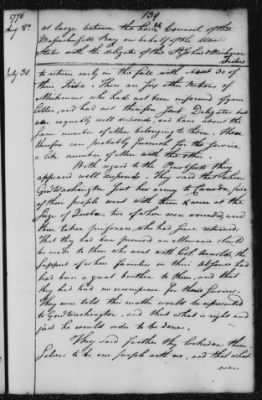 1776
139
Augt 8th
at large between the Honble Council of the
Massachusetts Bay in behalf of the
State with the delegates of the St Johns & Mickmac
Tribes
July 30
to return early in the fall with about 30 of
their Tribe. There are Six other Nations of
Mickmacs who had not been informed of your
Letter, and had not therefore sent Delegates but
we engage they will depend and have about the
same number of Men belonging to them. These
therefore can probably furnish for the Service
a like number of Men with the other.
With regard to the Penobscots they
appeared well disposed. They said that when
Genl Washington sent his army to Canada, five
of their people went with them & were at the
Siege of Quebec, two of whom were wounded, and
three taken prisoners, who had since returned.
That they had been promised an allowance should
be made to them who went with Col. Arnold, the
support of whose families in their absence had
had been a great burthen to them, and that
they had had no recompence for those Services.
They were told the matter would be represented
to Genl Washington, and that what is right and
just he would order to be done.
They said further they looked on them
Selves to be one People with us, and that what
ever